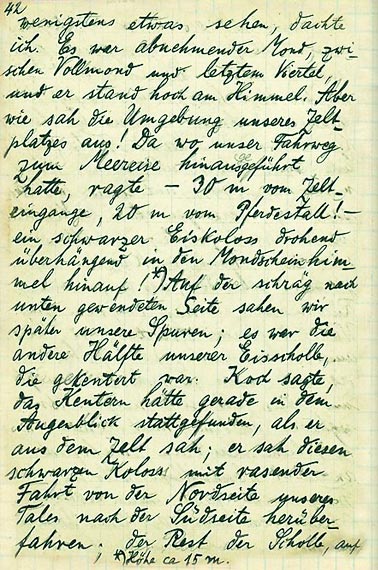 42
wenigstens etwas sehen, dachte
ich. Es war abnehmender Mond, zwi-
schen Vollmond und letztem Viertel,
und er stand hoch am Himmel. Aber
wie sah die Umgebung unseres Zelt-
platzes aus! Da wo unser Fahrweg
zum Meereise hinausgeführt
hatte, ragte – 30 m vom Zelt-
eingange, 20 m vom Pferdestall! –
ein schwarzer Eiskoloss drohend
überhängend in den Mondscheinhim-
mel hinauf! *) Auf der schräg nach
unten gewendeten Seite sahen wir
später unsere Spuren; es war die
andere Hälfte unserer Eisscholle,
die gekentert war. Koch sagte,
das Kentern hätte gerade in dem
Augenblick stattgefunden, als er
aus dem Zelt sah; er sah diesen
schwarzen Koloss mit rasender
Fahrt von der Nordseite unseres
Tales nach der Südseite herüber-
fahren; der Rest der Scholle, auf
*) Höhe ca 15 m.